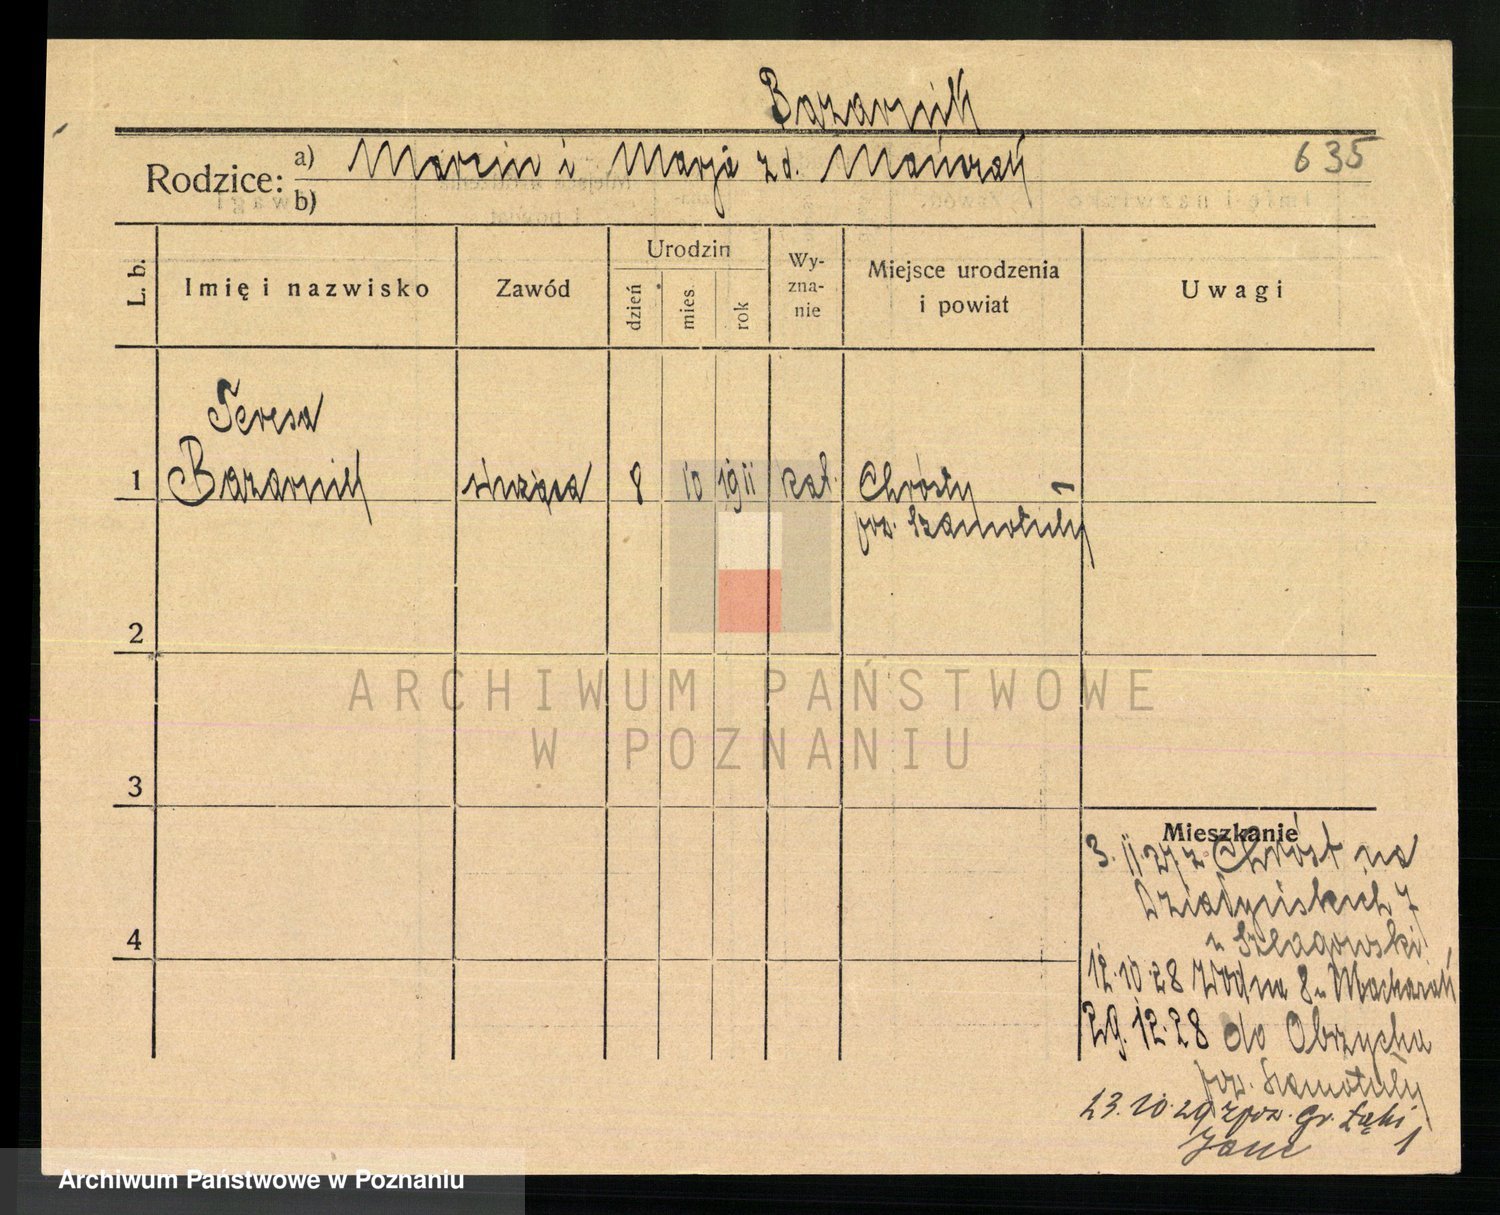 Bazarnik
Rodzice: a) Marcin i Marja zd. Mańczak
b)
635
L. b.
Imię i nazwisko
Zawód
Urodzin
dzień
mies.
rok
Wy-
zna-
nie
Miejsce urodzenia
i powiat
Uwagi
Teresa
1 Bazarnik służąca 8 10 1911 kat. Chrósty
pow. Szamotuły
2
3
4
Mieszkanie
3. 11. 27 z Chróst na
Działyńskich 7
u Szlagowski
12. 10. 28 Wodna 8 u
29. 12. 28 do Obrzycka
pow. Szamotuły
23. 10. 29 z pow. Gr. Łąki
1
ARCHIWUM PAŃSTWOWE
W POZNANIU
Archiwum Państwowe w Poznaniu